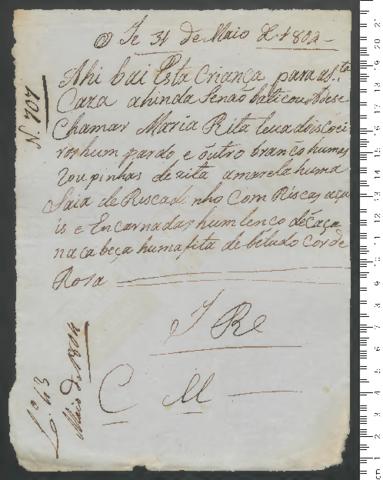 Je 31 de Maio de 1804
Ahi bai Esta Criança para a S.ta
Caza ahinda Senão baticou Adese
Chamar Maria Rita leua dois coei
ros hum pardo, e outro branco humas
roupinhas de xita amarela huma
Saia de Riscadinho Com Riscas açu
is e Encarnadas hum lenço de caça
na cabeça huma fita de beludo cor de
Roza
J Re
C M
N. 707
L.o 43
Maio de 1804